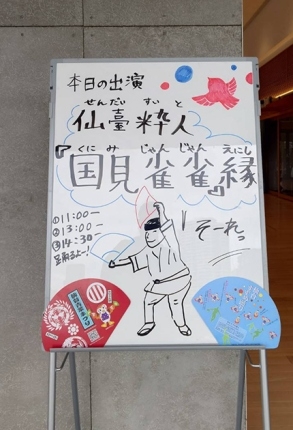 本日の出演
せんだい すいと
仙臺粋人
くにみ じゃんじゃん えにし
『国見雀雀縁』
①11:00ー
②13:00ー
③14:30ー
そーれっ